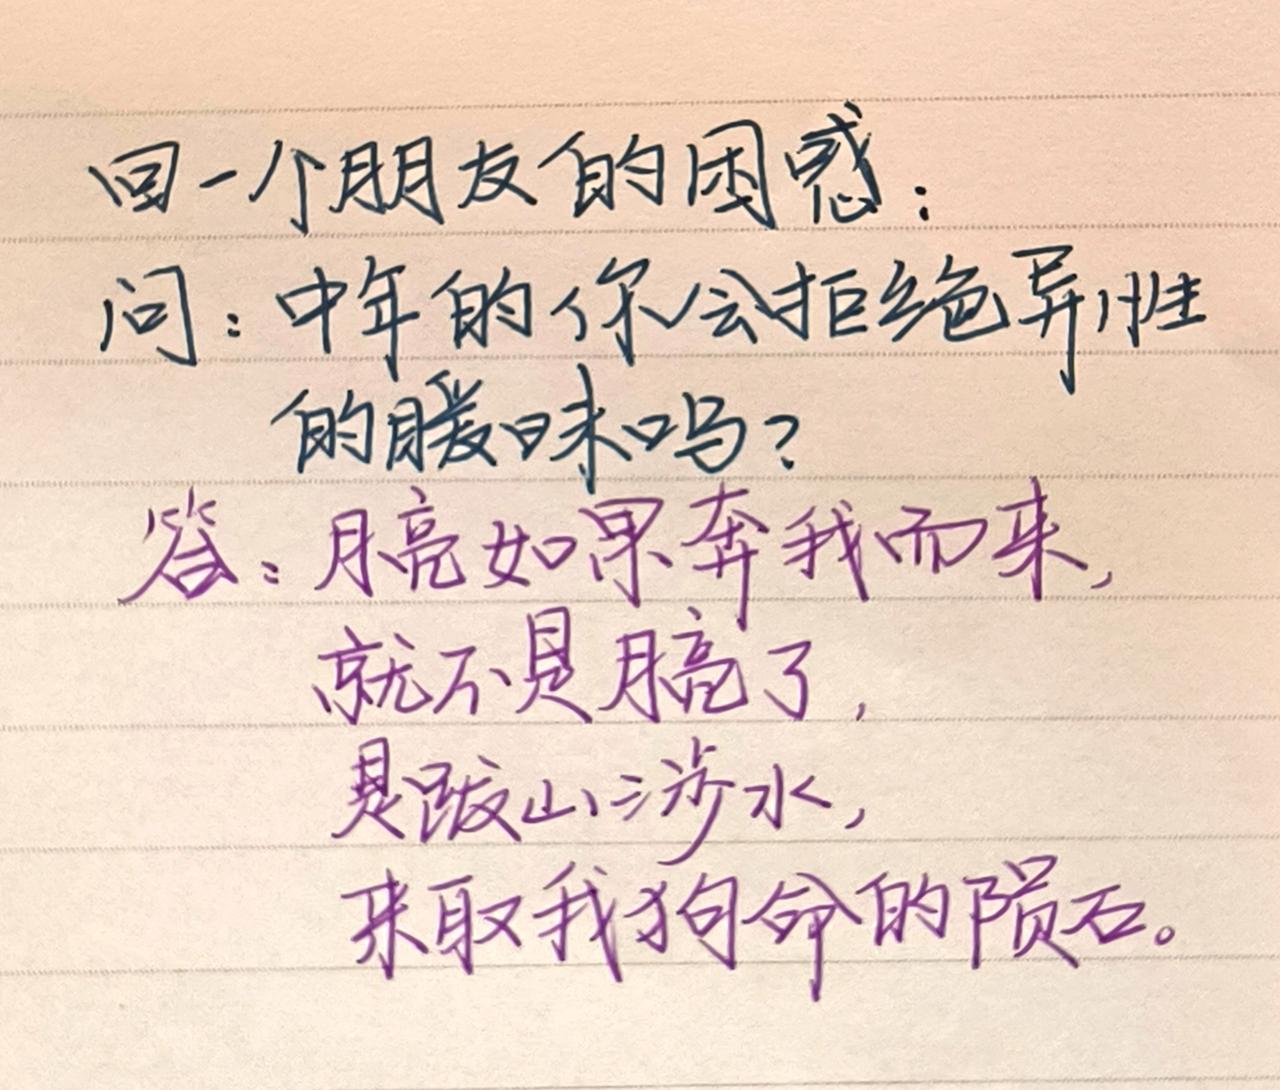 回一个朋友的困惑：
问：中年的你会拒绝异性
的暖昧吗？
答：月亮如果奔我而来，
就不是月亮了，
是跋山涉水，
来取我狗命的陨石。